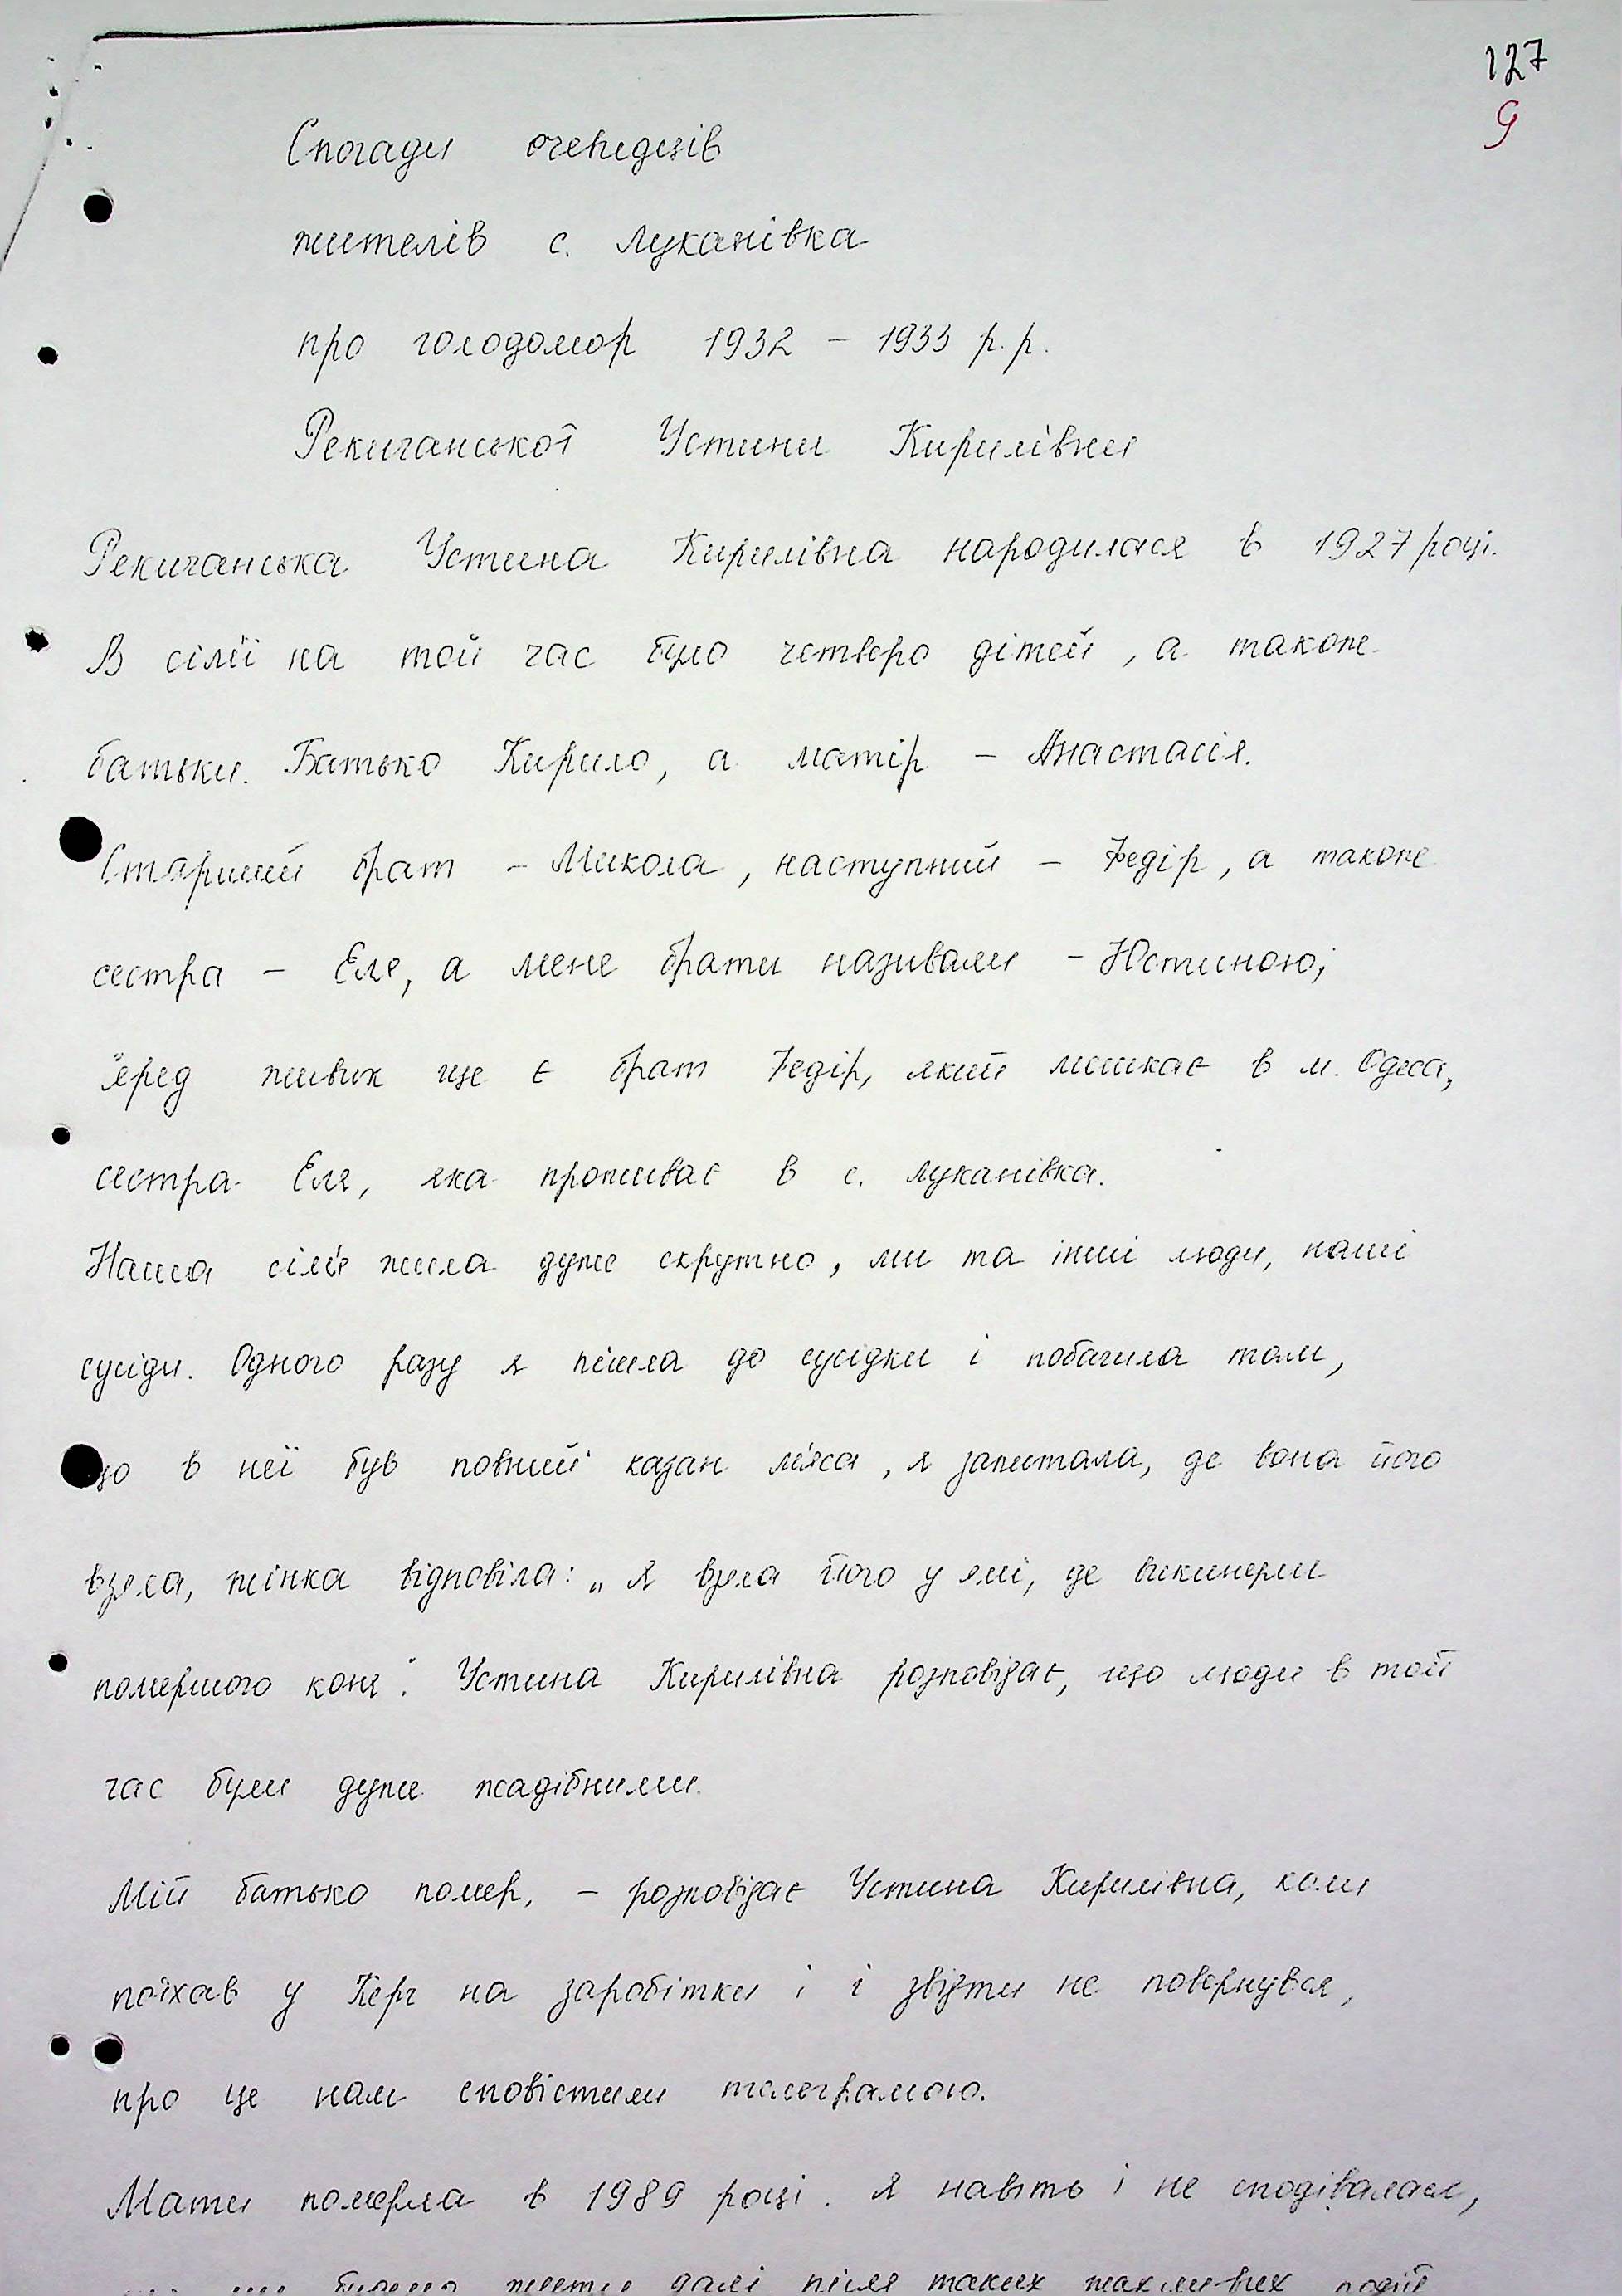 127
9
Спогади очевидців
жителів с. Луканівка
про голодомор 1932 – 1933 р.р.
Рекичанської Устини Кирилівни
Рекичанська Устина Кирилівна народилася в 1927 році.
В сім'ї на той час було четверо дітей, а також
батьки. Батько Кирило, а матір – Анастасія.
Старший брат – Микола, наступний – Федір, а також
сестра – Еля, а мене брати називали – Юстиною,
серед живих ще є брат Федір, який мешкає в м. Одеса,
сестра Еля, яка проживає в с. Луканівка.
Наша сім'я жила дуже скрутно, ми та інші люди, наші
сусіди. Одного разу я пішла до сусідки і побачила там,
що в неї був повний казан м'яса, я запитала, де вона його
взяла, жінка відповіла: „Я взяла його у ямі, де викинули
померлого коня". Устина Кирилівна розповідає, що люди в той
час були дуже жадібними.
Мій батько помер, – розповідає Устина Кирилівна, коли
поїхав у Керч на заробітки і і звідти не повернувся,
про це нам сповістили телеграмою.
Мати померла в 1989 році. Я навіть і не сподівалася,
що ми будемо жити далі після таких жахливих подій